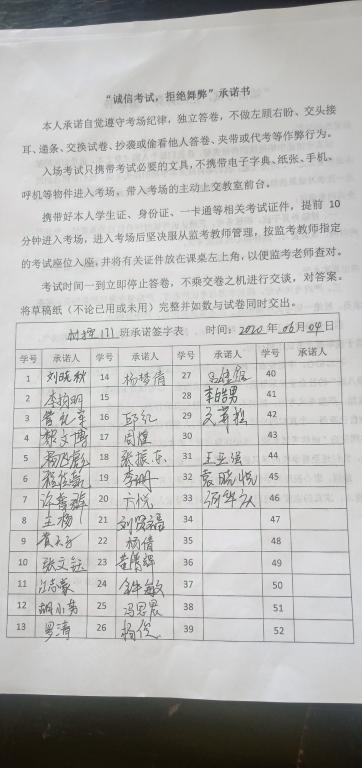 “诚信考试，拒绝舞弊”承诺书
本人承诺自觉遵守考场纪律，独立答卷，不做左顾右盼、交头接
耳、递条、交换试卷、抄袭或偷看他人答卷、夹带或代考等作弊行为。
入场考试只携带考试必要的文具，不携带电子字典、纸张、手机、
呼机等物件进入考场，带入考场的主动上交教室前台。
携带好本人学生证、身份证、一卡通等相关考试证件，提前 10
分钟进入考场，进入考场后坚决服从监考教师管理，按监考教师指定
的考试座位入座，并将有关证件放在课桌左上角，以便监考老师查对。
考试时间一到立即停止答卷，不乘交卷之机进行交谈，对答案。
将草稿纸（不论已用或未用）完整并如数与试卷同时交出。
171班承诺签字表 时间：2020年06月04日
学号 承诺人 学号 承诺人 学号 承诺人 学号 承诺人
1 刘晓秋 14 杨梦倩 27 40
2 15 28 李皓男 41
3 16 邱红 29 42
4 17 周煌 30 43
5 18 张振东 31 王亚强 44
6 19 李珊 32 袁晓悦 45
7 20 卞悦 33 46
8 王杨 21 刘贤福 34 47
9 22 杨倩 35 48
10 张文钰 23 36 49
11 24 敏 37 50
12 胡小芳 25 冯思晨 38 51
13 罗清 26 杨悦 39 52